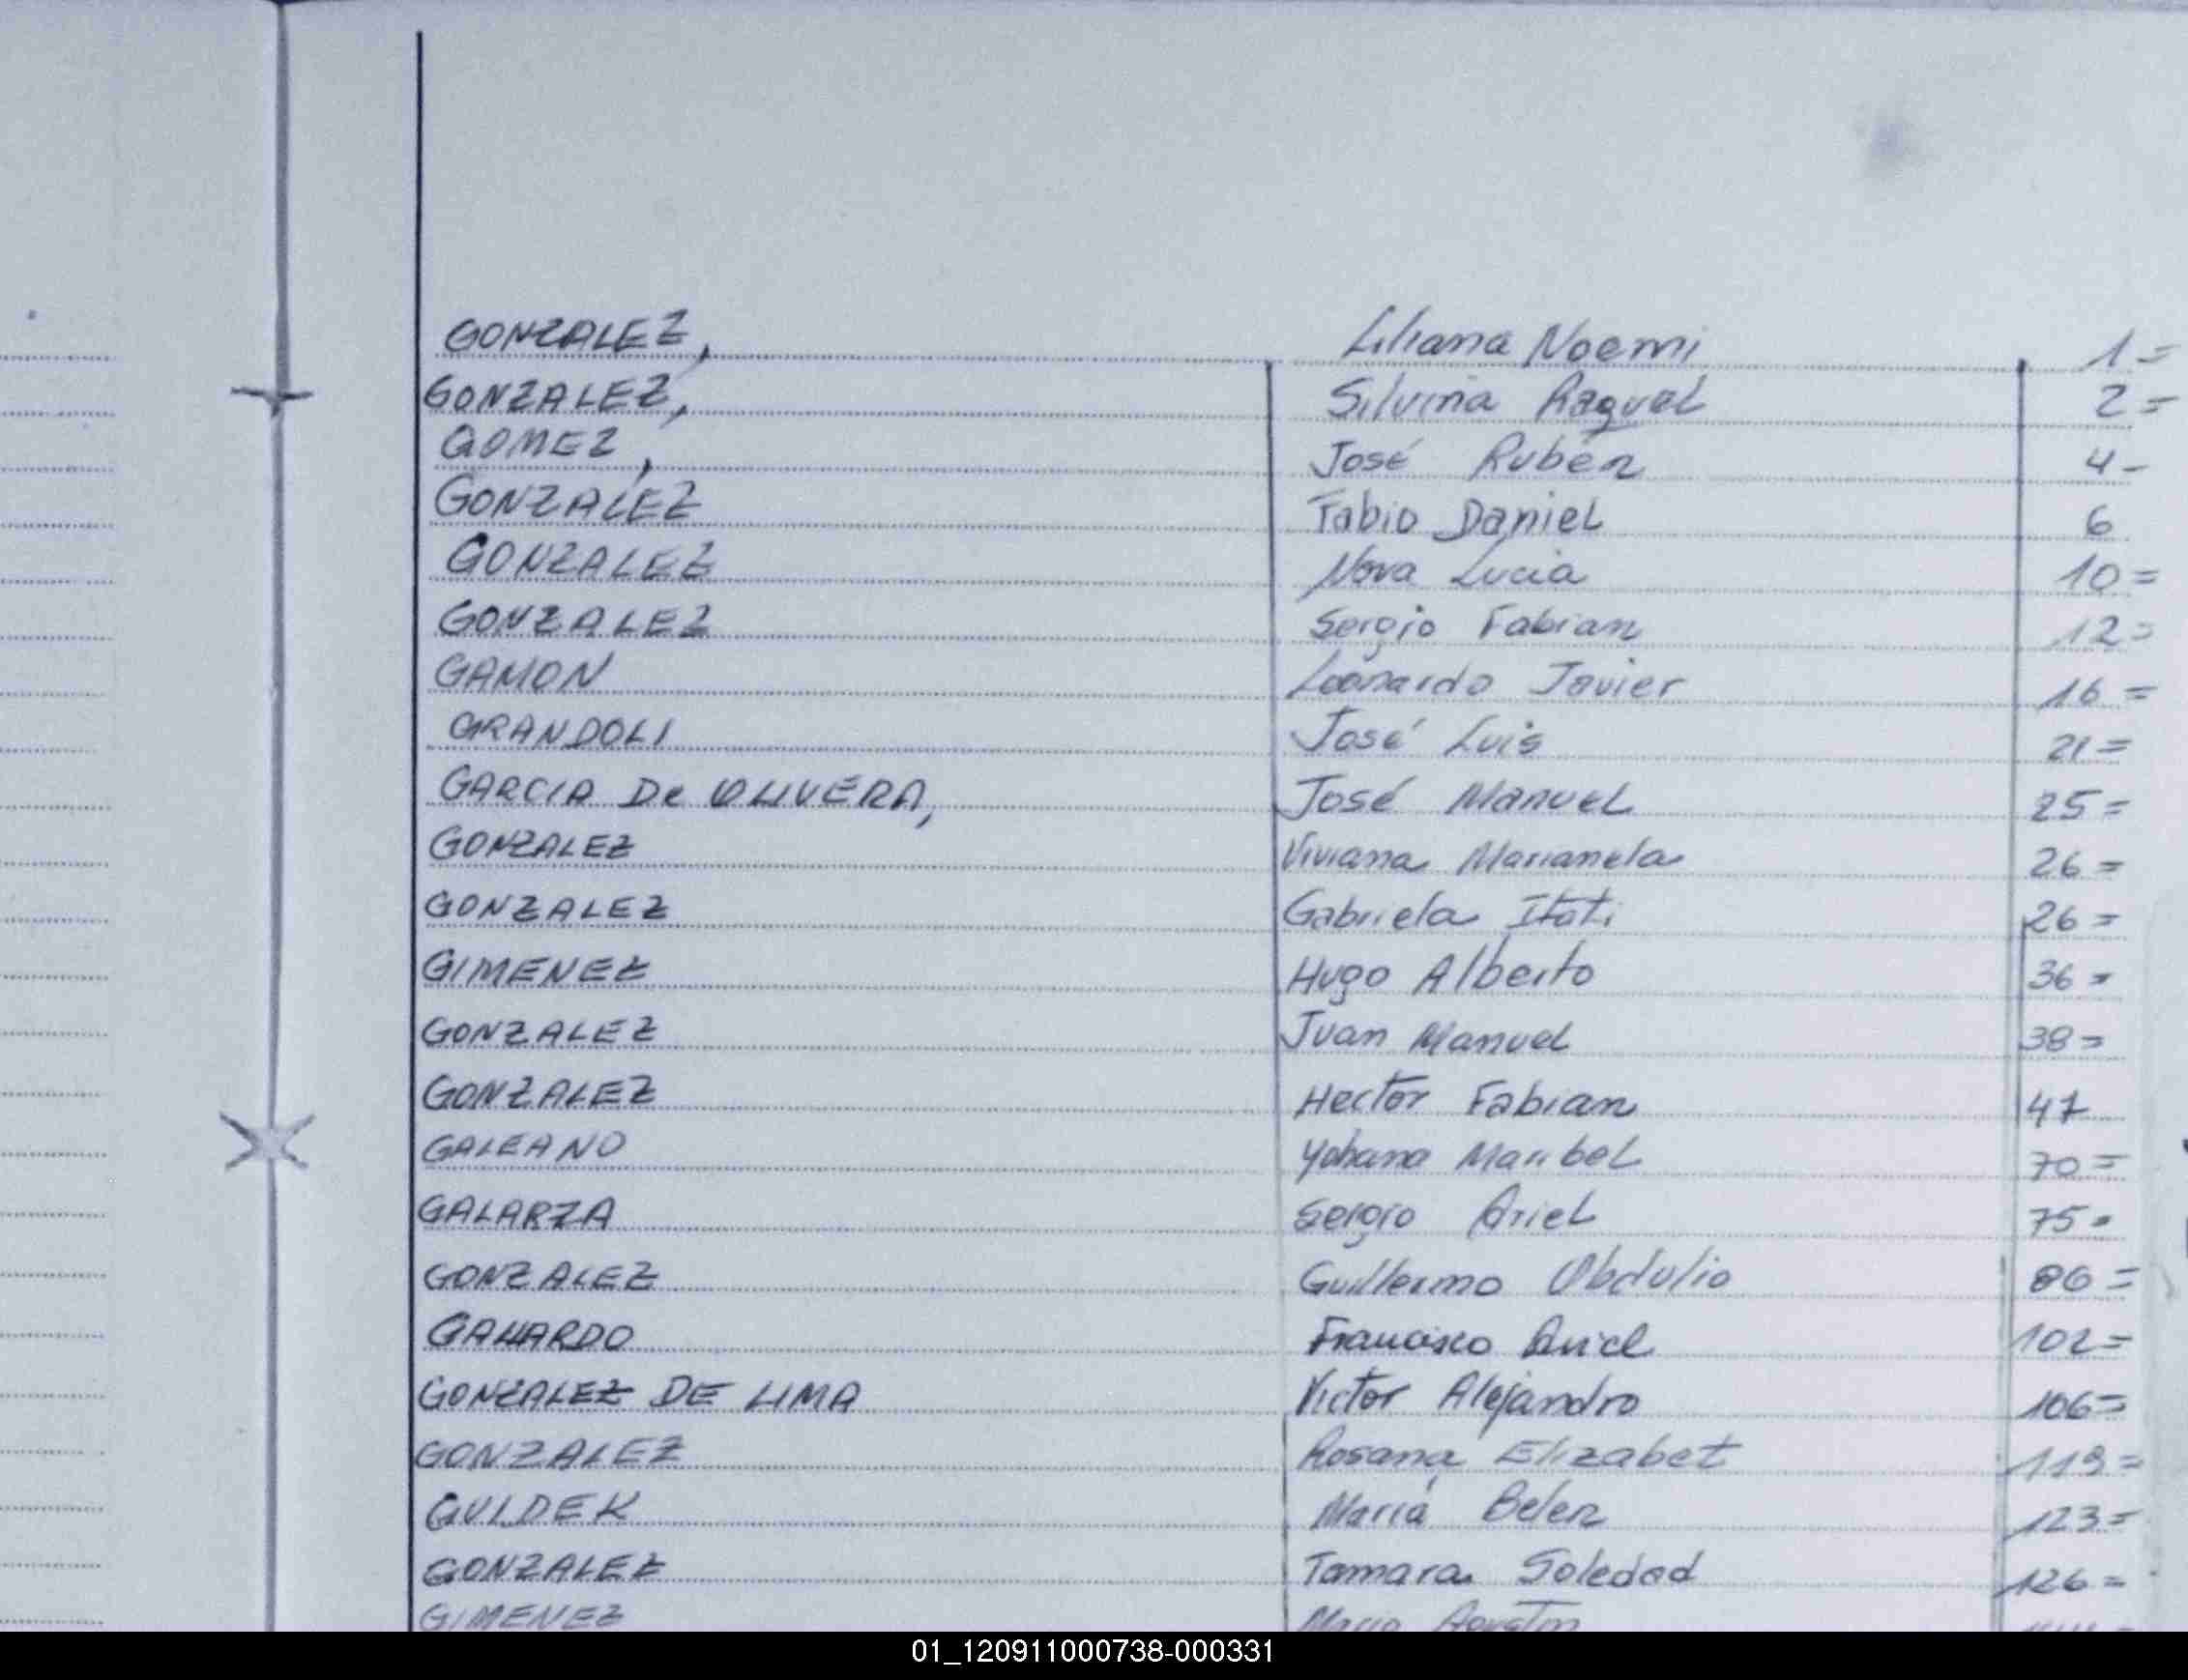 GONZALEZ, Liliana Noemi 1=
GONZALEZ, Silvina Raquel 2=
GOMEZ, José Rubén 4-
GONZALEZ Fabio Daniel 6
GONZALEZ Nora Lucia 10=
GONZALEZ Sergio Fabian 12=
GAMON Leonardo Javier 16=
GRANDOLI José Luis 21=
GARCIA De OLIVERA, José Manuel 25=
GONZALEZ Viviana Marianela 26=
GONZALEZ Gabriela Itati 26=
GIMENEZ Hugo Alberto 36=
GONZALEZ Juan Manuel 38=
GONZALEZ Hector Fabian 47
GALEANO Yohana Maribel 70=
GALARZA Sergio Ariel 75=
GONZALEZ Guillermo Obdulio 86=
GALLARDO Francisco Ariel 102=
GONZALEZ DE LIMA Victor Alejandro 106=
GONZALEZ Rosana Elizabet 119=
GULDEK Mariá Belen 123=
GONZALEZ Tamara Soledad 126=
GIMENEZ
01_120911000738-000331